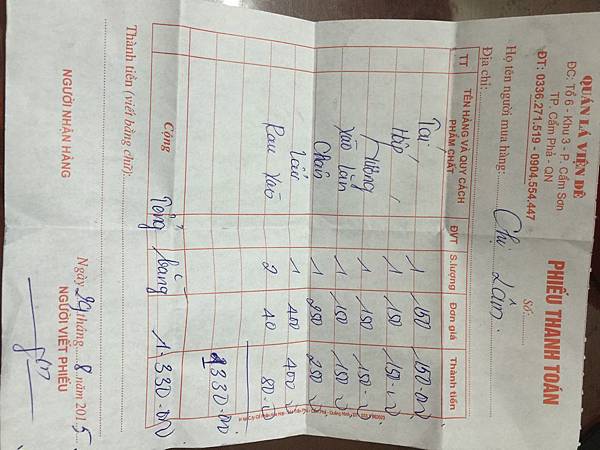 QUÁN LÁ VIÊN DÊ
ĐC: Tổ 6 - Khu 3 - P. Cẩm Sơn
TP. Cẩm Phả - QN
ĐT: 0336.271.519 - 0904.554.447
PHIẾU THANH TOÁN
Số:
Họ tên người mua hàng: Chị Lâm
Địa chỉ:
TT TÊN HÀNG VÀ QUY CÁCH PHẨM CHẤT ĐVT S.lượng Đơn giá Thành tiền
Tái 1 150 150.00
Hấp 1 150 150.00
Hương 1 150 150.00
Xào lăn 1 150 150.00
Chân 1 250 250.00
Lẩu 1 400 400.00
Rau Xào 2 40 80.00
1330.00
Cộng Tổng bằng 1.330.00
Thành tiền (viết bằng chữ):
Ngày 29 tháng 8 năm 2015
NGƯỜI NHẬN HÀNG NGƯỜI VIẾT PHIẾU